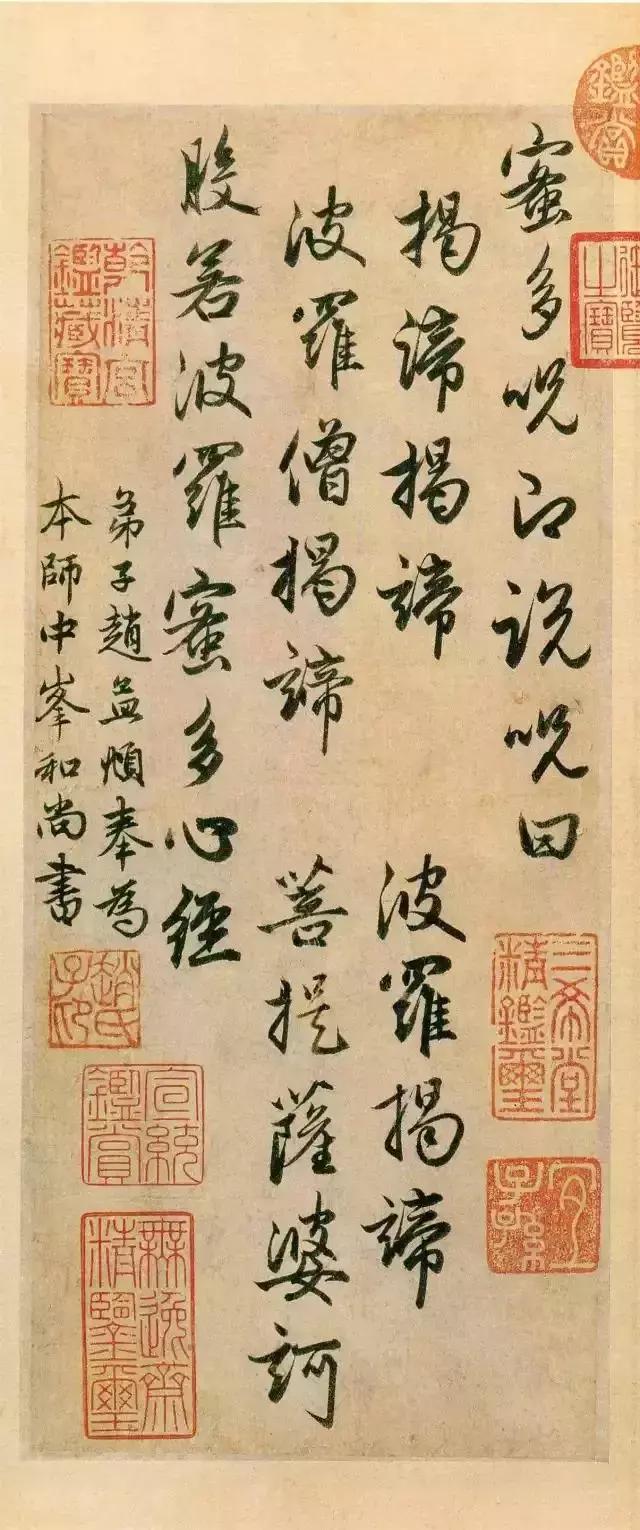 鑑賞
御覽之寶
蜜多呪即説呪曰
三希堂精鑑璽
宜子孫
揭諦揭諦 波羅揭諦
波羅僧揭諦 菩提薩婆訶
般若波羅蜜多心經
弟子趙孟頫奉為
本師中峯和尚書
乾清宮鑑藏寶
趙氏子昂
宣統鑑賞
無逸齋精鑒璽